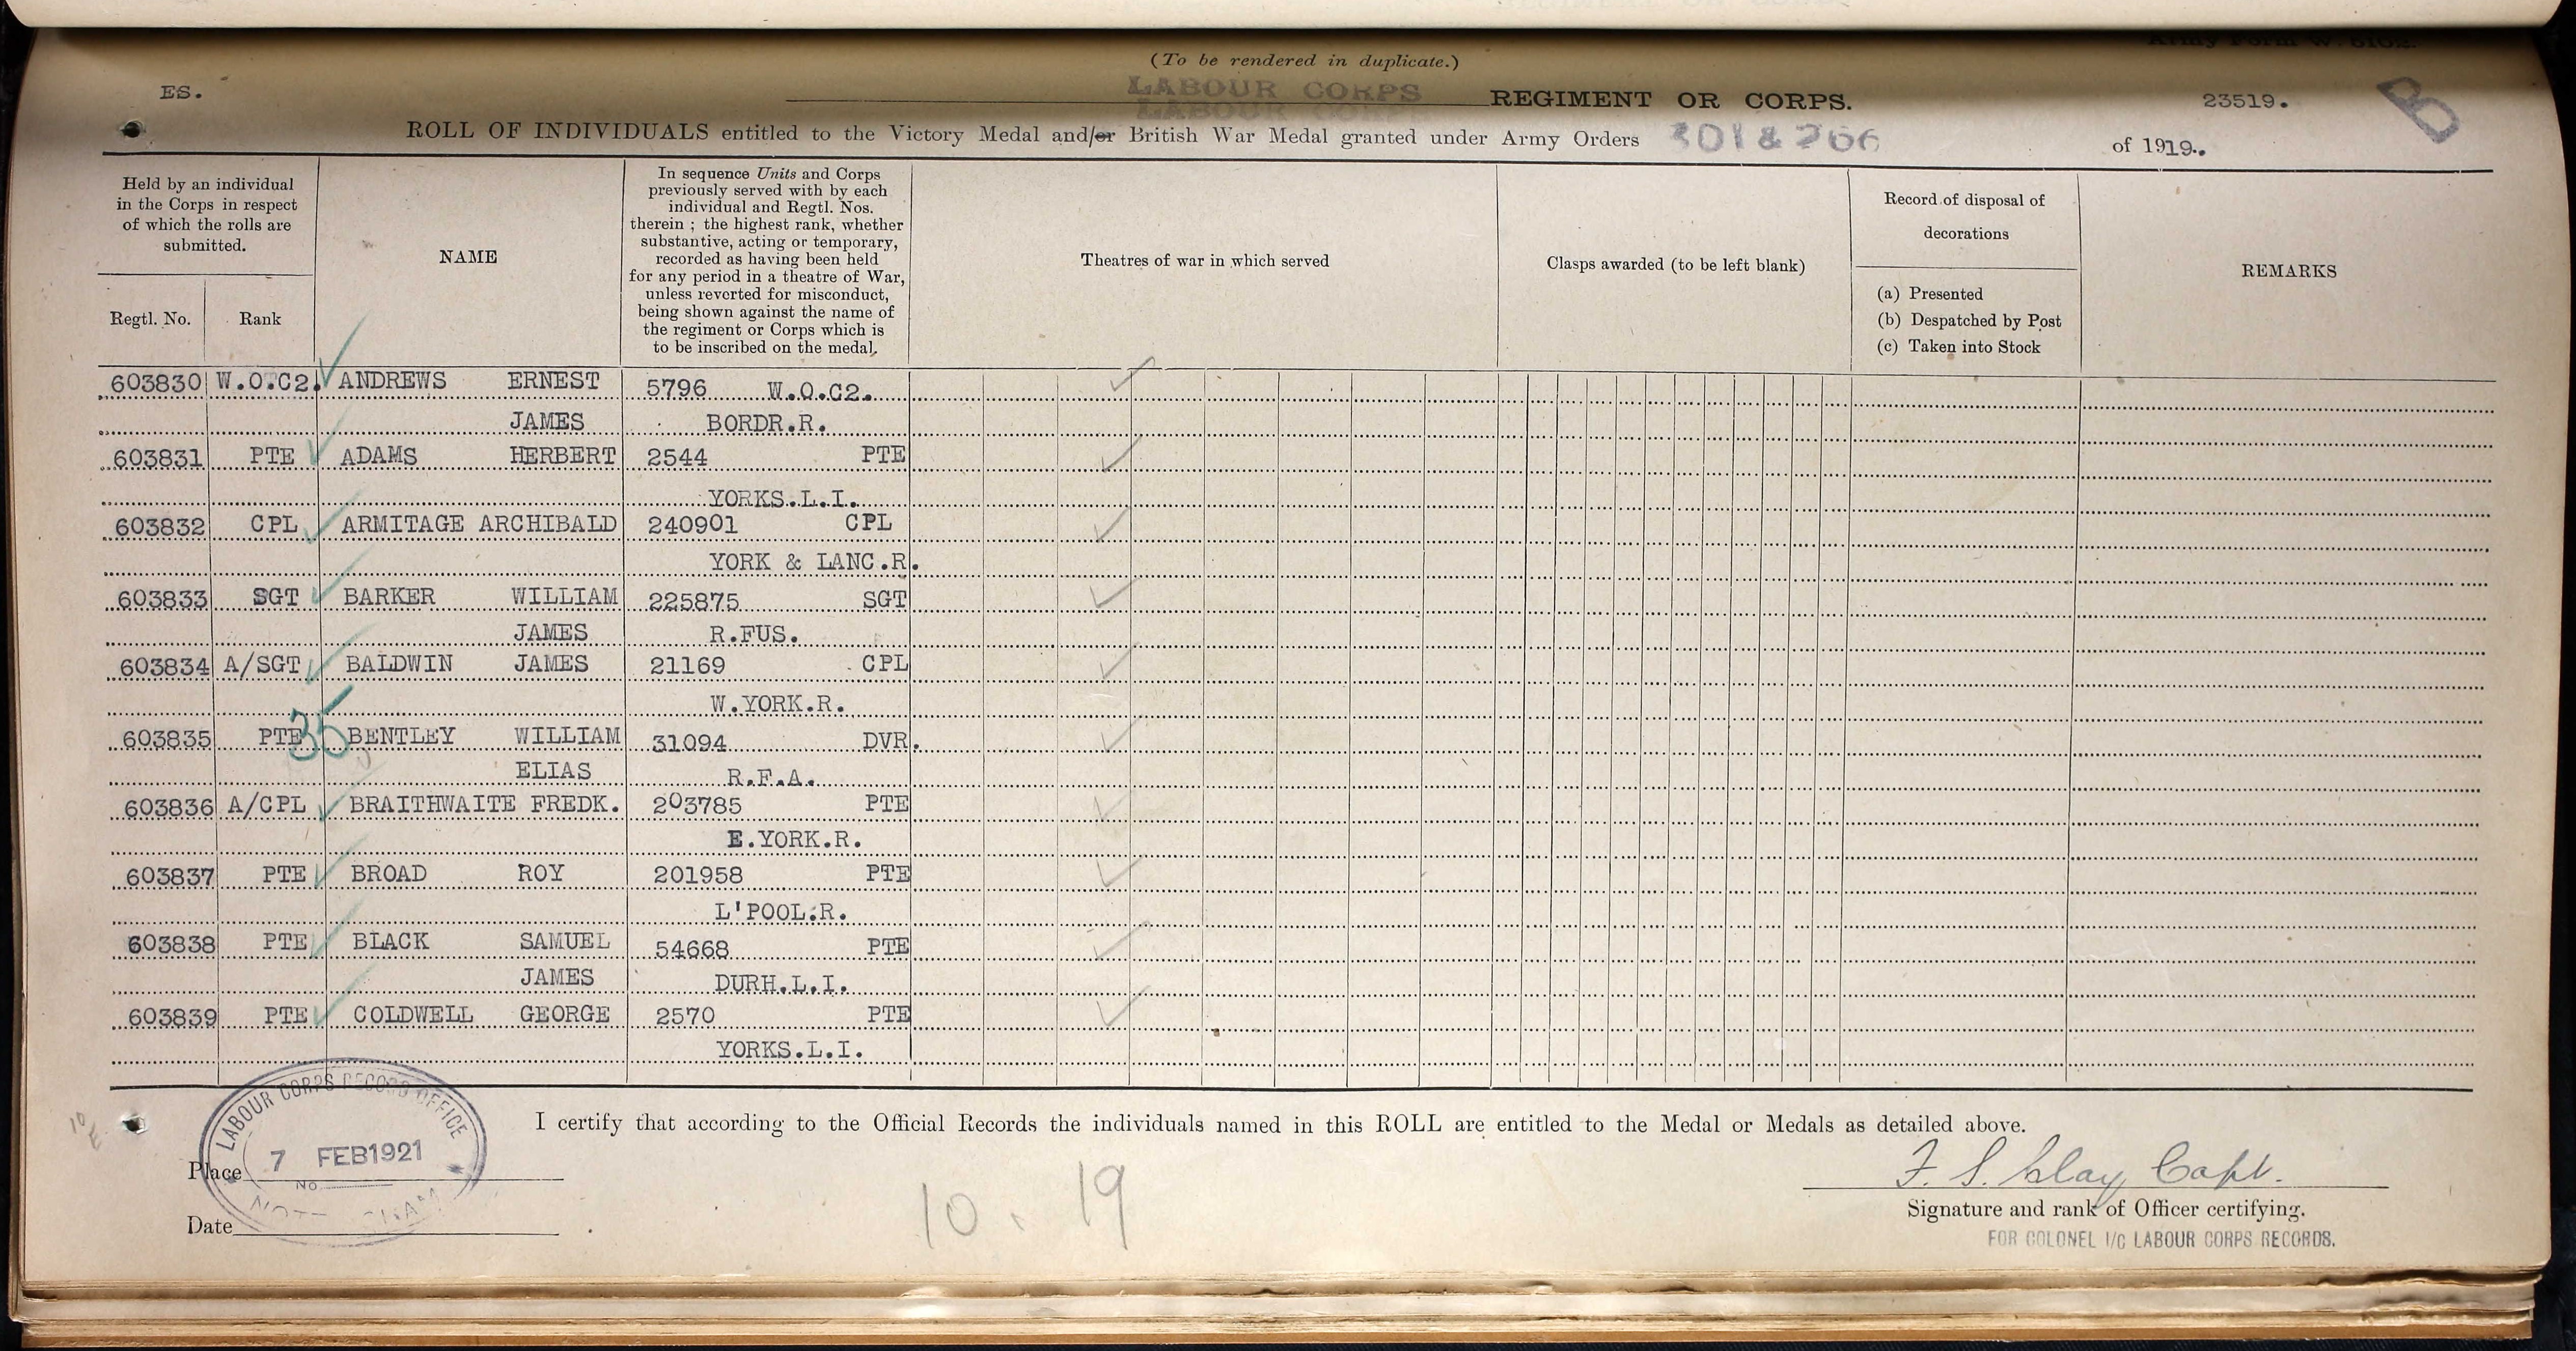 (To be rendered in duplicate.)
ES. LABOUR CORPS REGIMENT OR CORPS. 23519. B
ROLL OF INDIVIDUALS entitled to the Victory Medal and/or British War Medal granted under Army Orders 301 & 266 of 1919.
Held by an individual
in the Corps in respect
of which the rolls are
submitted.
Regtl. No. Rank
NAME
In sequence Units and Corps
previously served with by each
individual and Regtl. Nos.
therein ; the highest rank, whether
substantive, acting or temporary,
recorded as having been held
for any period in a theatre of War,
unless reverted for misconduct,
being shown against the name of
the regiment or Corps which is
to be inscribed on the medal.
Theatres of war in which served
Clasps awarded (to be left blank)
Record of disposal of
decorations
(a) Presented
(b) Despatched by Post
(c) Taken into Stock
REMARKS
603830 W.O.C2. ANDREWS ERNEST 5796 W.O.C2.
JAMES BORDR.R.
603831 PTE ADAMS HERBERT 2544 PTE
YORKS.L.I.
603832 CPL ARMITAGE ARCHIBALD 240901 CPL
YORK & LANC.R.
603833 SGT BARKER WILLIAM 225875 SGT
JAMES R.FUS.
603834 A/SGT BALDWIN JAMES 21169 CPL
W.YORK.R.
603835 PTE 35 BENTLEY WILLIAM 31094 DVR.
ELIAS R.F.A.
603836 A/CPL BRAITHWAITE FREDK. 203785 PTE
E.YORK.R.
603837 PTE BROAD ROY 201958 PTE
L'POOL.R.
603838 PTE BLACK SAMUEL 54668 PTE
JAMES DURH.L.I.
603839 PTE COLDWELL GEORGE 2570 PTE
YORKS.L.I.
I certify that according to the Official Records the individuals named in this ROLL are entitled to the Medal or Medals as detailed above.
LABOUR CORPS RECORD OFFICE
7 FEB 1921
No
Place
Date
10. 19
F. S. Clay Capt.
Signature and rank of Officer certifying.
FOR COLONEL I/C LABOUR CORPS RECORDS.